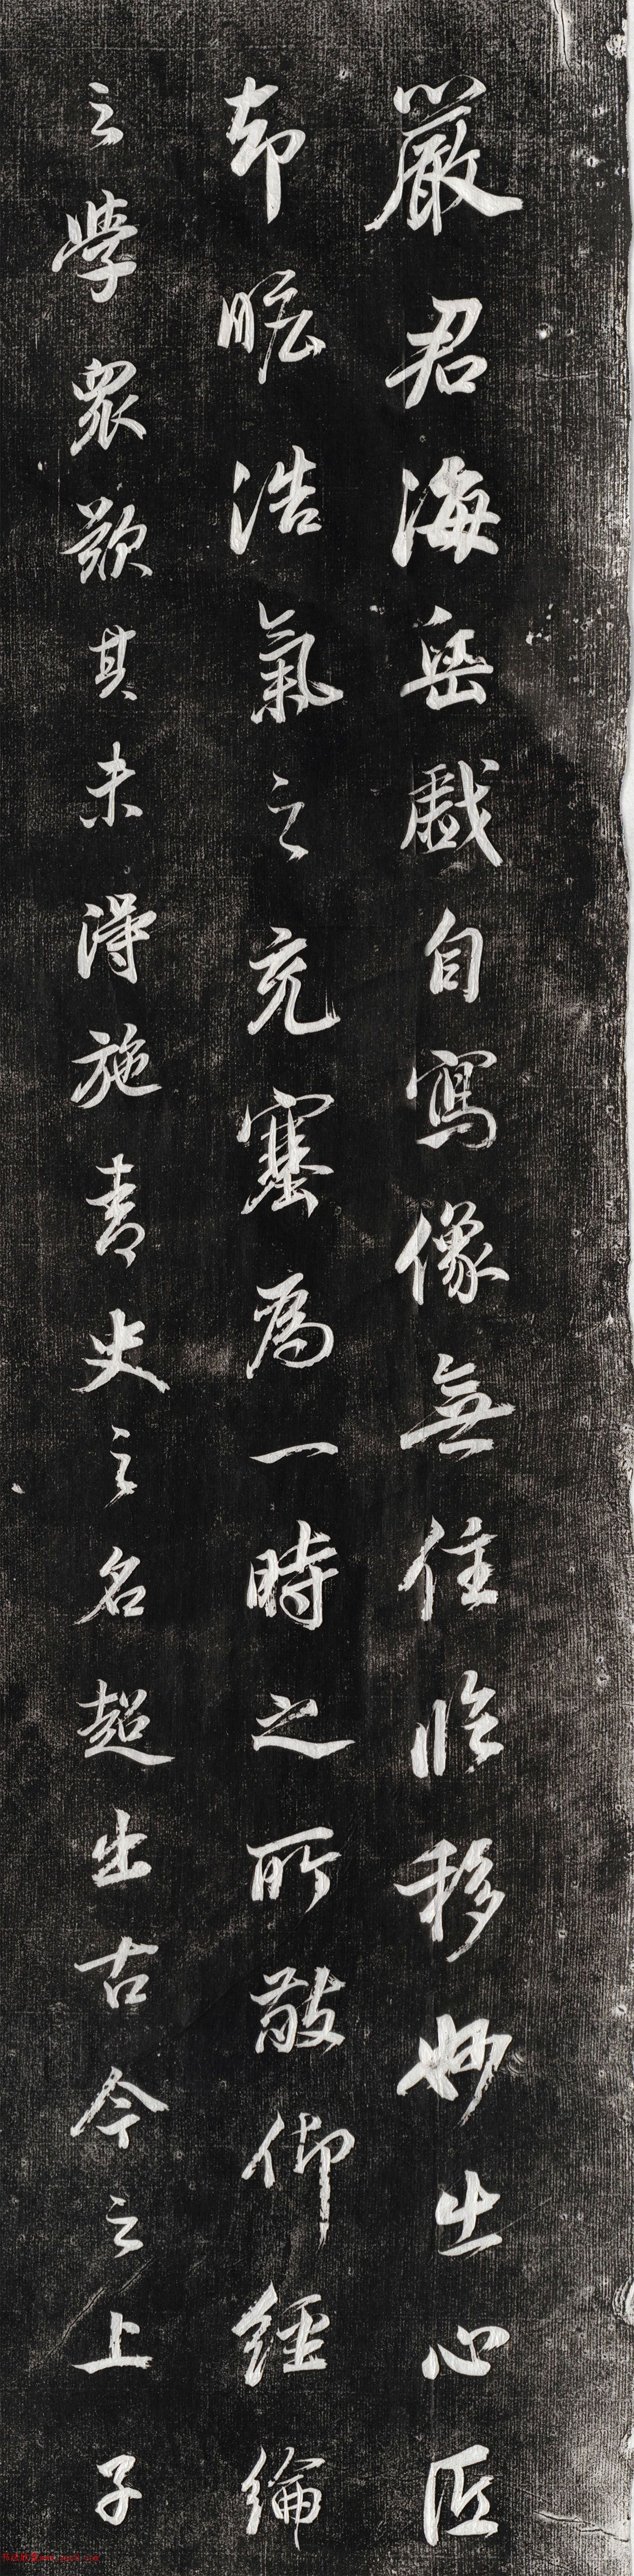 嚴君海岳戲自寫像無住臨移妙出心匠
却瞻浩氣之充塞為一時之所敬仰經綸
之學眾歎其未得施青史之名超出古今之上子